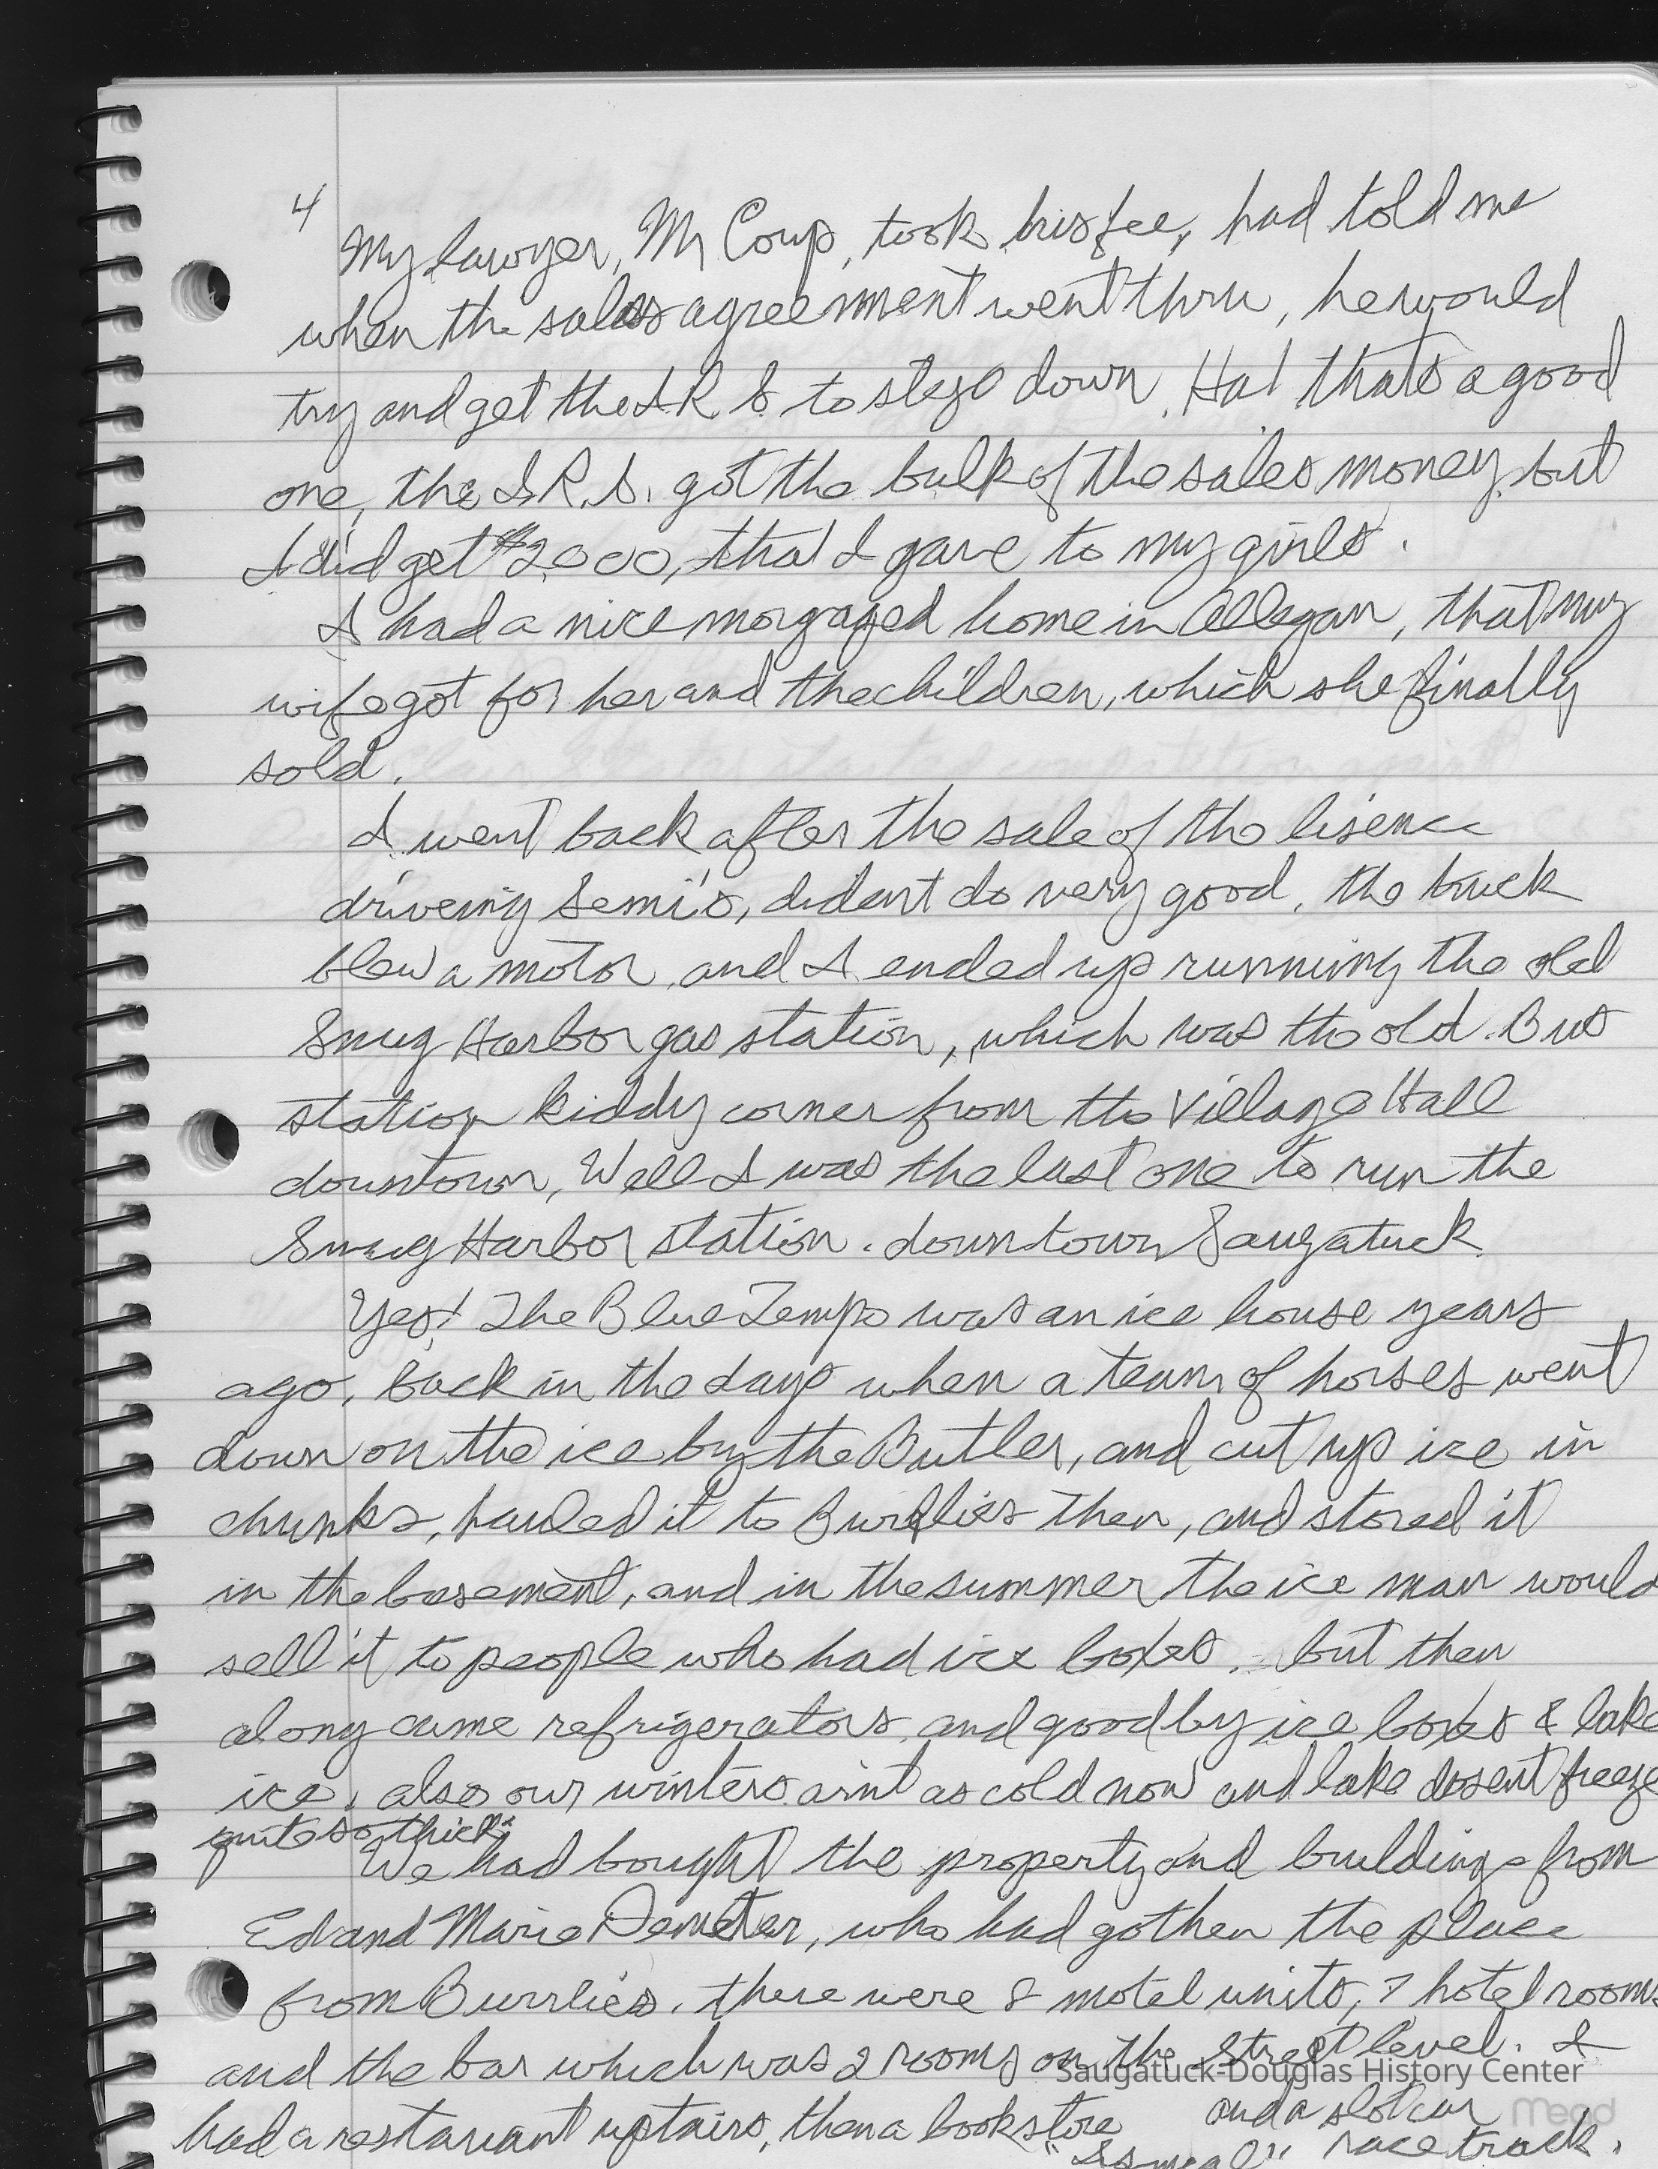 4
My lawyer, Mr Coup, took his fee, had told me
when the sales agreement went thru, he would
try and get the I R S to step down. Ha! thats a good
one, the I.R.S. got the bulk of the sales money, but
I did get $2000, that I gave to my girls.
I had a nice morgaged home in Allegan, that my
wife got for her and the children, which she finally
sold.
I went back after the sale of the lisence
driveing Semi's, didant do very good, the truck
blew a motor, and I ended up running the old
Snug Harbor gas station, which was the old Bus
station kiddy corner from the Village Hall
downtown, Well I was the last one to run the
Snug Harbor station. downtown Saugatuck.
Yes! The Blue Tempo was an ice house years
ago. Back in the days when a team of horses went
down on the ice by the Butler, and cut up ice in
chunks, hauled it to Burrlies then, and stored it
in the basement, and in the summer the ice man would
sell it to people who had ice boxes. but then
along came refrigerators, and goodby ice boxes & lake
ice, also our winters aint as cold now and lake dosent freeze
quite so thick.
We had bought the property and buildings from
Ed and Marie Demeter, who had gothen the place
from Burrlies. there were 8 motel units, 7 hotel rooms
and the bar which was 2 rooms on the street level. I
had a restaruant uptairs, then a bookstore and a slot car
race track.
Saugatuck-Douglas History Center
Mead